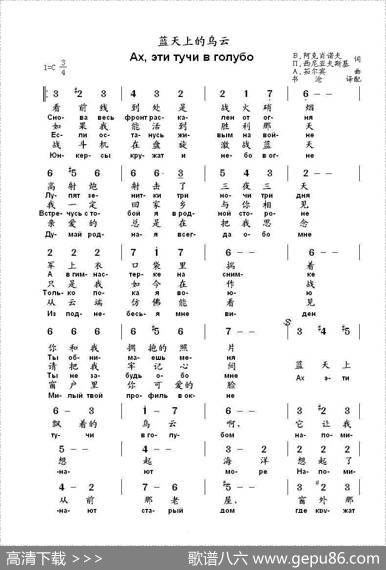 蓝天上的乌云
Ах, эти тучи в голубо
В.阿克肖诺夫 词
П.西尼亚夫斯基
А.茹尔宾 曲
书沧 译配
1=C 3/4
3 #2 3 4 3 2 2 1 7 6 – –
看前线到处是战火硝烟
Сно-ва весь фронт рас-ка-лен от ог-ня
如果我能活到胜利那天
Ес-ли ос-та-нусь жи-вым на вой-не
战斗机在盘旋激战蓝天
Юн-кер-сы кру-жат и не-бо в ог-не
6 #5 6 6 6 3 5 4 3 2 – –
高射炮射击了三夜三天
Лу-пят зе-нит-ки три ночи три дня
我一定回家乡与你相见
Встре-чусь с то-бой я в род-ной сто-ро-не
亲爱的总是在把我思念
Ду-май род-на-я всег-да о бо мне
2 2 2 7 1 2 1 7 6 6 – –
军上衣口袋里揣着
А в гим-нас-тер-ке на сним-ке
只是我如今在作战
Толь-ко по-ка я во-ю
从云端仿佛能看见
Из под не-бесь-я мне ви-ден
6 6 6 6 #5 6 7 – –
3 #4 #5
你和我拥抱的照片
Ты об-ни-ма-ешь ме-ня
请把我牢记心间
蓝天上
Ты не за-будь о-бо мне
Ах э-ти
窗户里你可爱的脸
Ми-лый твой про-филь в ок-не
6 – 3 i – 7 6 – – 3 #2 3
飘着的乌云啊，它让我
ту-чи в го-лу-бом на-по-ми-
5 – – 4 – – 3 – 2 2 1 2
想起海洋想起了
на-ют мо-ре На-по-ми-
4 – – i – 7 3 – – 6 7 6
从前那老屋，窗外那
на-ют старый дом где кру-жат
高清下载 >>>
歌谱八六 www.gepu86.com